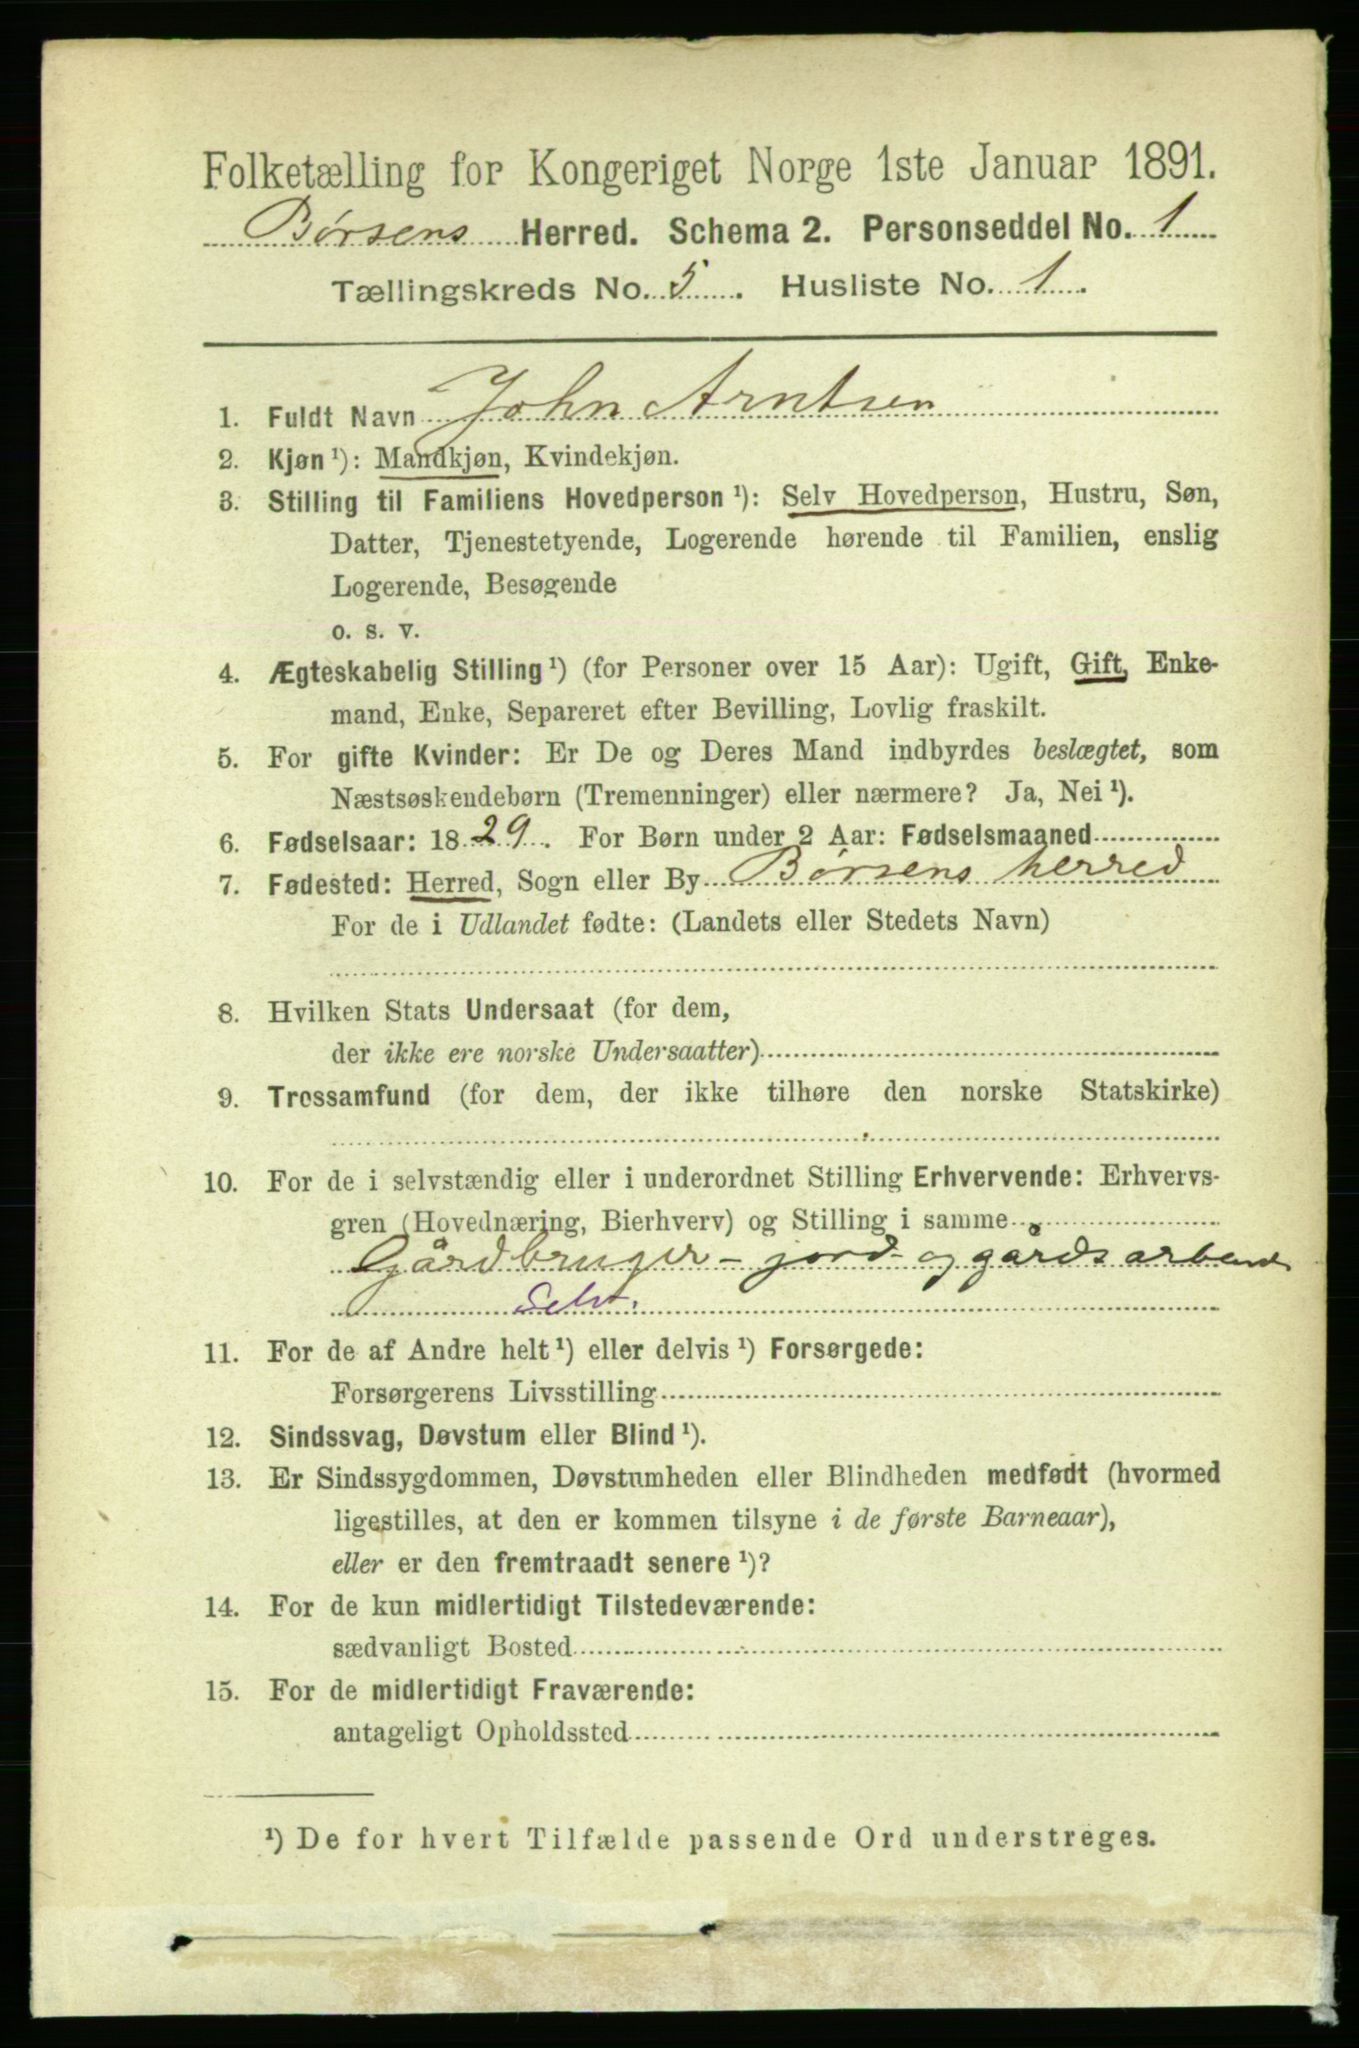 Folketælling for Kongeriget Norge 1ste Januar 1891.
Børsens Herred. Schema 2. Personseddel No. 1
Tællingskreds No. 5. Husliste No. 1.
1. Fuldt Navn John Arntsen
2. Kjøn ¹): Mandkjøn, Kvindekjøn.
3. Stilling til Familiens Hovedperson ¹): Selv Hovedperson, Hustru, Søn,
Datter, Tjenestetyende, Logerende hørende til Familien, enslig
Logerende, Besøgende
o. s. v.
4. Ægteskabelig Stilling ¹) (for Personer over 15 Aar): Ugift, Gift, Enke-
mand, Enke, Separeret efter Bevilling, Lovlig fraskilt.
5. For gifte Kvinder: Er De og Deres Mand indbyrdes beslægtet, som
Næstsøskendebørn (Tremenninger) eller nærmere? Ja, Nei ¹).
6. Fødselsaar: 1829. For Børn under 2 Aar: Fødselsmaaned
7. Fødested: Herred, Sogn eller By Børsens herred
For de i Udlandet fødte: (Landets eller Stedets Navn)
8. Hvilken Stats Undersaat (for dem,
der ikke ere norske Undersaatter)
9. Trossamfund (for dem, der ikke tilhøre den norske Statskirke)
10. For de i selvstændig eller i underordnet Stilling Erhvervende: Erhvervs-
gren (Hovednæring, Bierhverv) og Stilling i samme
Gårdbruger - jord- og gårdsarbeide
Selv.
11. For de af Andre helt ¹) eller delvis ¹) Forsørgede:
Forsørgerens Livsstilling
12. Sindssvag, Døvstum eller Blind ¹).
13. Er Sindssygdommen, Døvstumheden eller Blindheden medfødt (hvormed
ligestilles, at den er kommen tilsyne i de første Barneaar),
eller er den fremtraadt senere ¹)?
14. For de kun midlertidigt Tilstedeværende:
sædvanligt Bosted
15. For de midlertidigt Fraværende:
antageligt Opholdssted
¹) De for hvert Tilfælde passende Ord understreges.